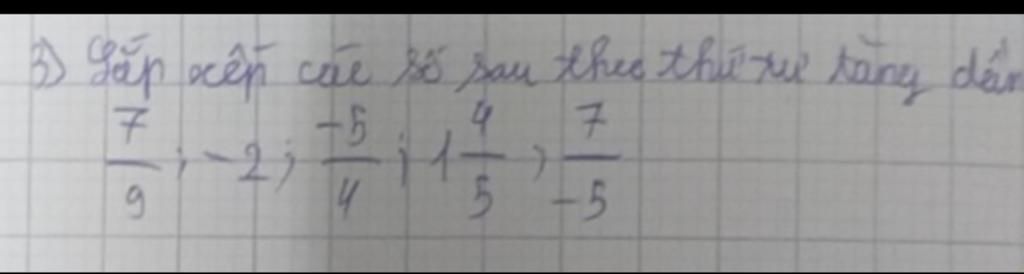 3) Sắp xếp các số sau theo thứ tự tăng dần
7/9 ; -2 ; -5/4 ; 1 4/5 , 7/-5